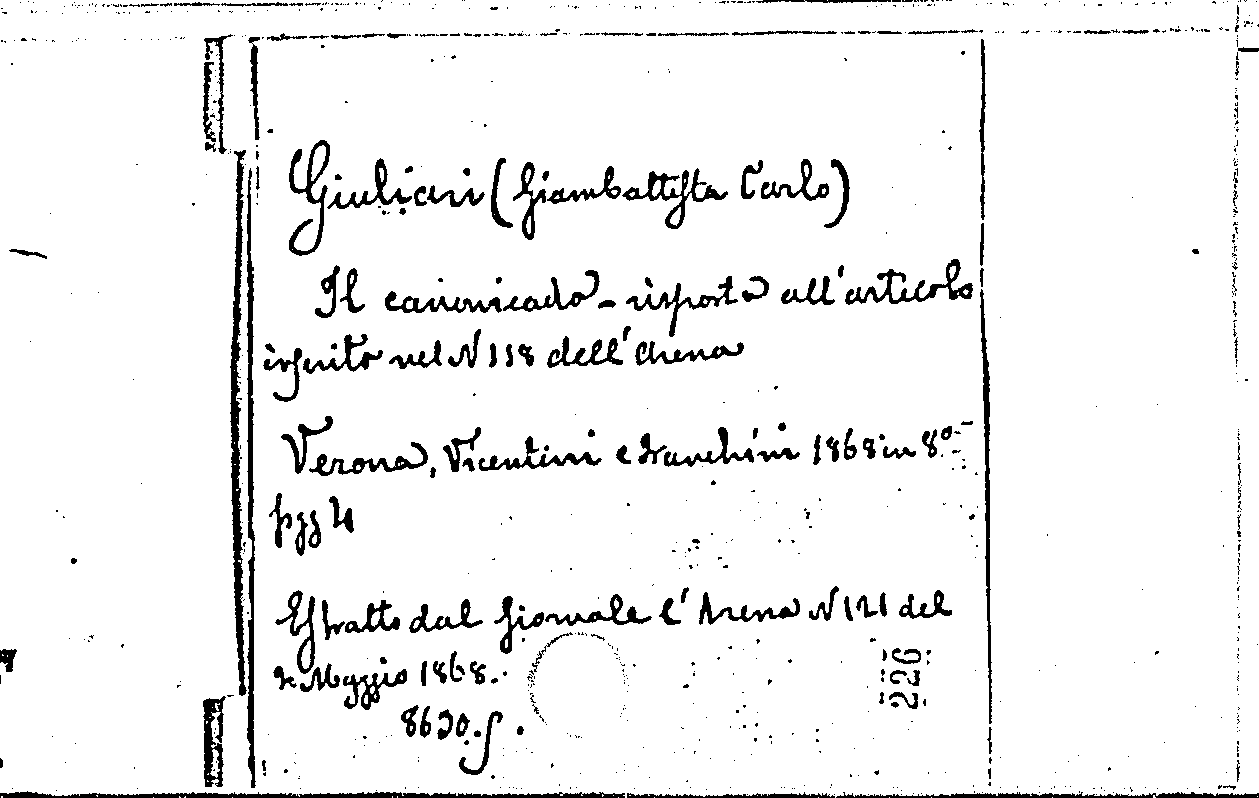 Giuliari (Giambattista Carlo)
Il canonicado - risposta all'articolo
inserito nel N 118 dell'Arena
Verona, Vicentini e Franchini 1868 in 8º
pgg 4
Estratto dal Giornale l'Arena N 121 del
2 Maggio 1868.
8630.f.
226